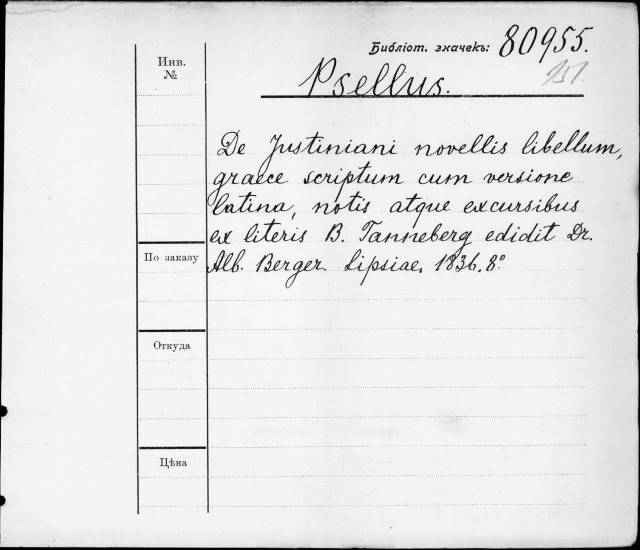 Библіот. значекъ: 80955.
151.
Инв.
№
Psellus.
De Justiniani novellis libellum,
graece scriptum cum versione
latina, notis atque excursibus
ex literis B. Tanneberg edidit Dr.
Alb. Berger. Lipsiae. 1836. 8°
По заказу
Откуда
Цѣна